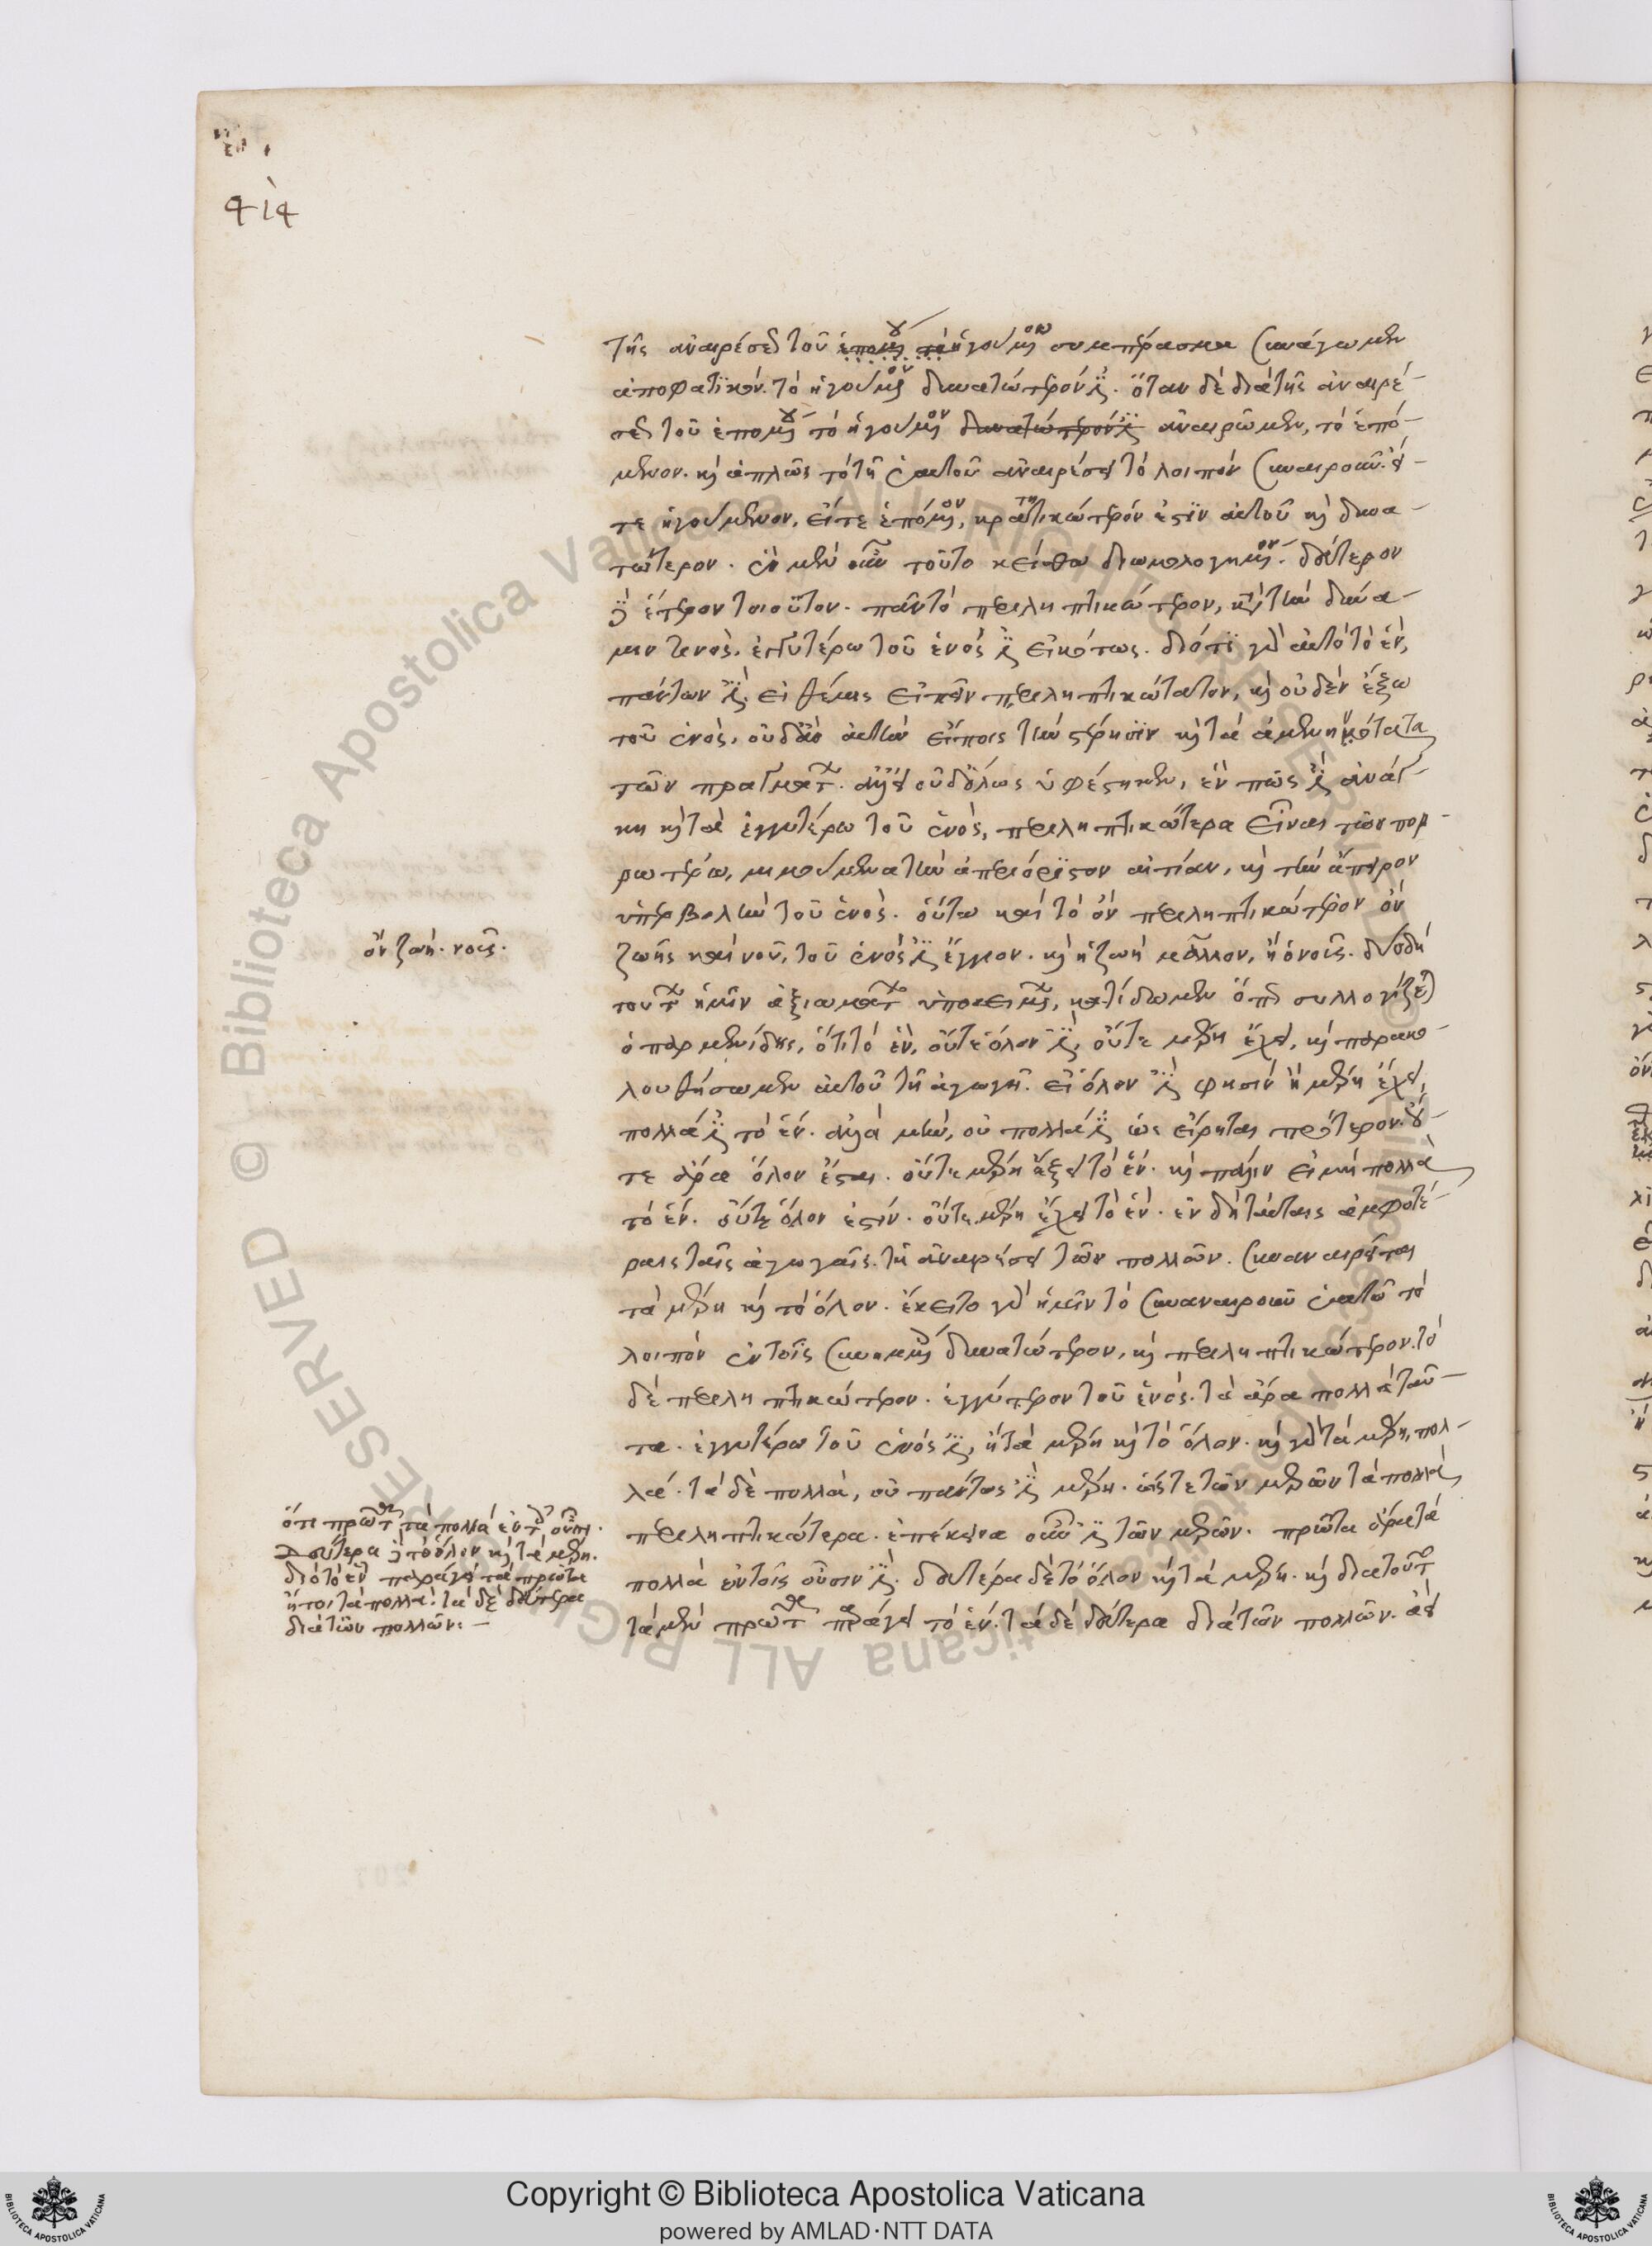 τῆς ἀναιρέσεως τοῦ ἑπομένου τὸ ἡγούμενον συμπέρασμα συνάγωμεν
ἀποφατικόν. τὸ ἡγούμενον δυνατώτερόν ἐστι. ὅταν δὲ διὰ τῆς ἀναιρέ-
σεως τοῦ ἑπομένου τὸ ἡγούμενον δυνατώτερόν ἐστι ἀναιρῶμεν, τὸ ἑπό-
μενον. καὶ ἁπλῶς τὸ τῇ ἑαυτοῦ ἀναιρέσει τὸ λοιπὸν συναιροῦν. εἴ-
τε ἡγούμενον, εἴτε ἑπόμενον, κρατητικώτερόν ἐστιν αὐτοῦ καὶ δυνα-
τώτερον. ἓν μὲν οὖν τοῦτο κείσθω διωμολογημένον. δεύτερον
δὲ ἕτερον τοιοῦτον. πᾶν τὸ περιληπτικώτερον, κατὰ τὴν δύνα-
μιν τινὸς, ἐγγυτέρω τοῦ ἑνός ἐστι εἰκότως. διότι γὰρ αὐτὸ τὸ ἓν,
πάντων ἐστὶ, εἰ θέμις εἰπεῖν περιληπτικώτατον, καὶ οὐδὲν ἔξω
τοῦ ἑνὸς, οὐδ' ἂν αὐτὴν εἴποις τὴν στέρησιν καὶ τὰ ἀμενηνότατα
τῶν πραγμάτων. ἀλλ' εἰ οὐδ' ὅλως ὑφέστηκεν, ἕν πως ἐστὶ ἀνάγ-
κη καὶ τὰ ἐγγυτέρω τοῦ ἑνὸς, περιληπτικώτερα εἶναι τῶν πορ-
ρωτέρω, μιμούμενα τὴν ἀπεριόριστον αἰτίαν, καὶ τὴν ἄπειρον
ὑπερβολὴν τοῦ ἑνός. οὕτω καὶ τὸ ὂν περιληπτικώτερον ὂν
ζωῆς καὶ νοῦ, τοῦ ἑνός ἐστι ἔγγιον. καὶ ἡ ζωὴ μᾶλλον, ἢ ὁ νοῦς. δύο δὴ
τούτων ἡμῖν ἀξιωμάτων ὑποκειμένων, κατίδωμεν ὅπως συλλογίζεται
ὁ παρμενίδης, ὅτι τὸ ἓν, οὔτε ὅλον ἐστὶ, οὔτε μέρη ἔχει, καὶ παρακο-
λουθήσωμεν αὐτοῦ τῇ ἀγωγῇ. εἰ ὅλον ἐστὶ φησὶν ἢ μέρη ἔχει,
πολλά ἐστι τὸ ἕν. ἀλλὰ μὴν, οὐ πολλά ἐστι ὡς εἴρηται πρότερον. οὔ-
τε ἄρα ὅλον ἔσται. οὔτε μέρη ἕξει τὸ ἕν. καὶ πάλιν εἰ μὴ πολλὰ
τὸ ἕν. οὔτε ὅλον ἐστίν. οὔτε μέρη ἔχει τὸ ἕν. ἐν δὴ ταύταις ἀμφοτέ-
ραις ταῖς ἀγωγαῖς. τῇ ἀναιρέσει τῶν πολλῶν. συναναιρεῖται
τὰ μέρη καὶ τὸ ὅλον. ἔκειτο γὰρ ἡμῖν τὸ συναναιροῦν ἑαυτῷ τὸ
λοιπὸν ἐν τοῖς συνημμένοις δυνατώτερον, καὶ περιληπτικώτερον. τὸ
δὲ περιληπτικώτερον. ἐγγύτερον τοῦ ἑνός. τὰ ἄρα πολλὰ ταῦ-
τα. ἐγγυτέρω τοῦ ἑνός ἐστι, ἢ τὰ μέρη καὶ τὸ ὅλον. καὶ γὰρ τὰ μέρη, πολ-
λά. τὰ δὲ πολλὰ, οὐ πάντως ἐστὶ μέρη. ὥστε τῶν μερῶν τὰ πολλὰ
περιληπτικώτερα. ἐπέκεινα οὖν ἐστι τῶν μερῶν. πρῶτα ἄρα τὰ
πολλὰ ἐν τοῖς οὖσιν ἐστὶ. δευτέρα δὲ τὸ ὅλον καὶ τὰ μέρη. καὶ διὰ τοῦτο
τὰ μὲν πρώτως παράγει τὸ ἕν. τὰ δὲ δεύτερα διὰ τῶν πολλῶν. ἀεὶ
ὂν ζωὴ. νοῦς.
ὅτι πρώτως τὰ πολλὰ ἐν τοῖς οὖσι.
δεύτερα δὲ τὸ ὅλον καὶ τὰ μέρη.
διὸ τὸ ἓν παράγει τὰ πρῶτα
ἤτοι τὰ πολλὰ. τὰ δὲ δεύτερα
διὰ τῶν πολλῶν: —